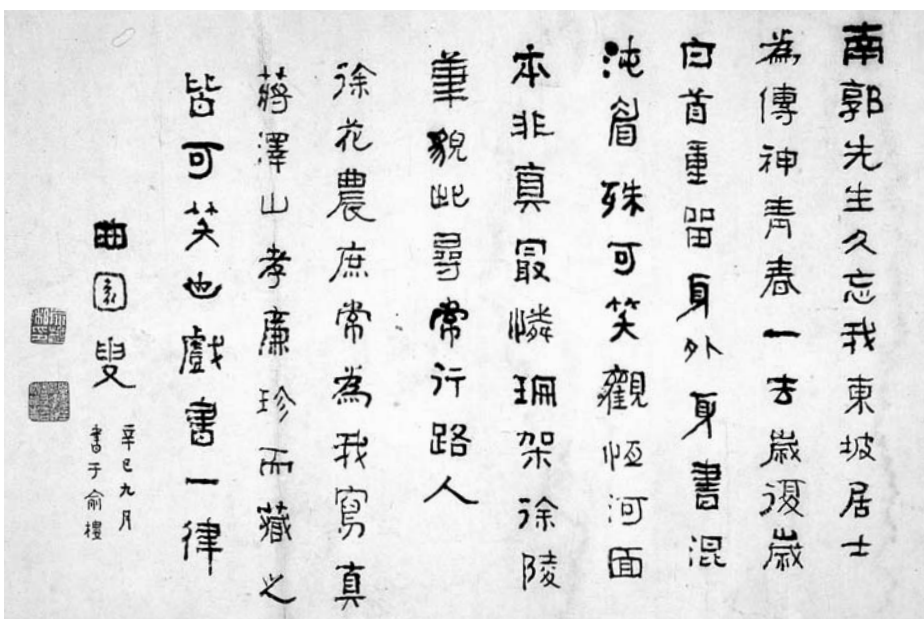 南郭先生久忘我東坡居士
為傳神青春一去歲復歲
白首重留身外身書混
沌眉殊可笑觀恆河面
本非真最憐珊架徐陵
筆貌此尋常行路人
徐花農庶常為我寫真
蔣澤山孝廉珍而藏之
皆可笑也戲書一律
曲園叟
辛巳九月
書于俞樓